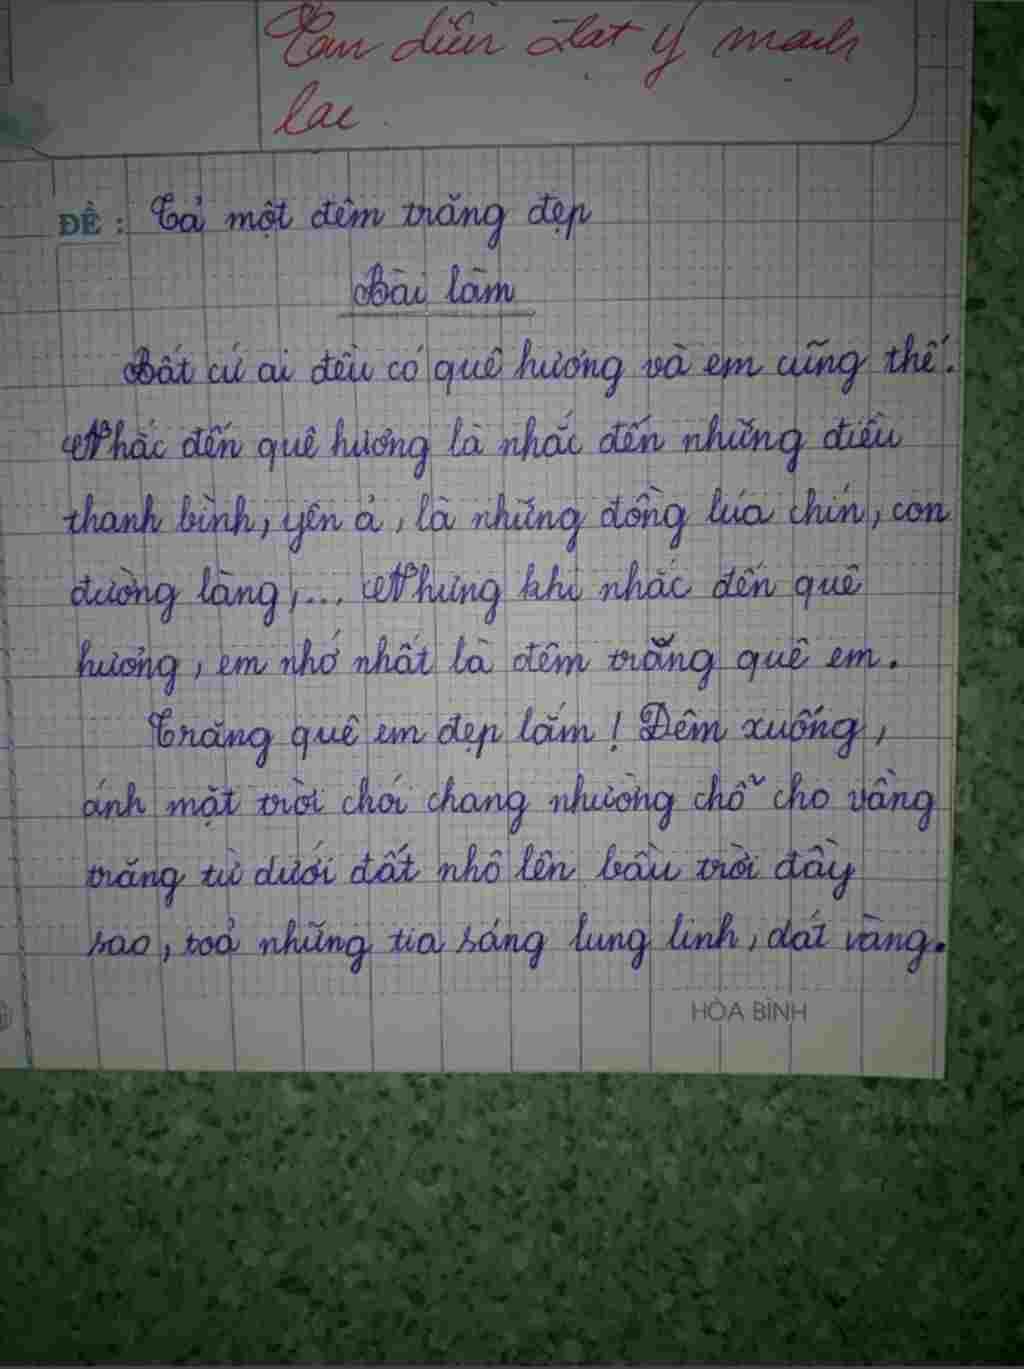 diễn đạt ý mạch
lạc.
ĐỀ : Tả một đêm trăng đẹp
Bài làm
Bất cứ ai đều có quê hương và em cũng thế.
Nhắc đến quê hương là nhắc đến những điều
thanh bình, yên ả, là những đồng lúa chín, con
đường làng,... Nhưng khi nhắc đến quê
hương, em nhớ nhất là đêm trăng quê em.
Trăng quê em đẹp lắm! Đêm xuống,
ánh mặt trời chói chang nhường chỗ cho vầng
trăng từ dưới đất nhô lên bầu trời đầy
sao, toả những tia sáng lung linh, dát vàng.
HÒA BÌNH